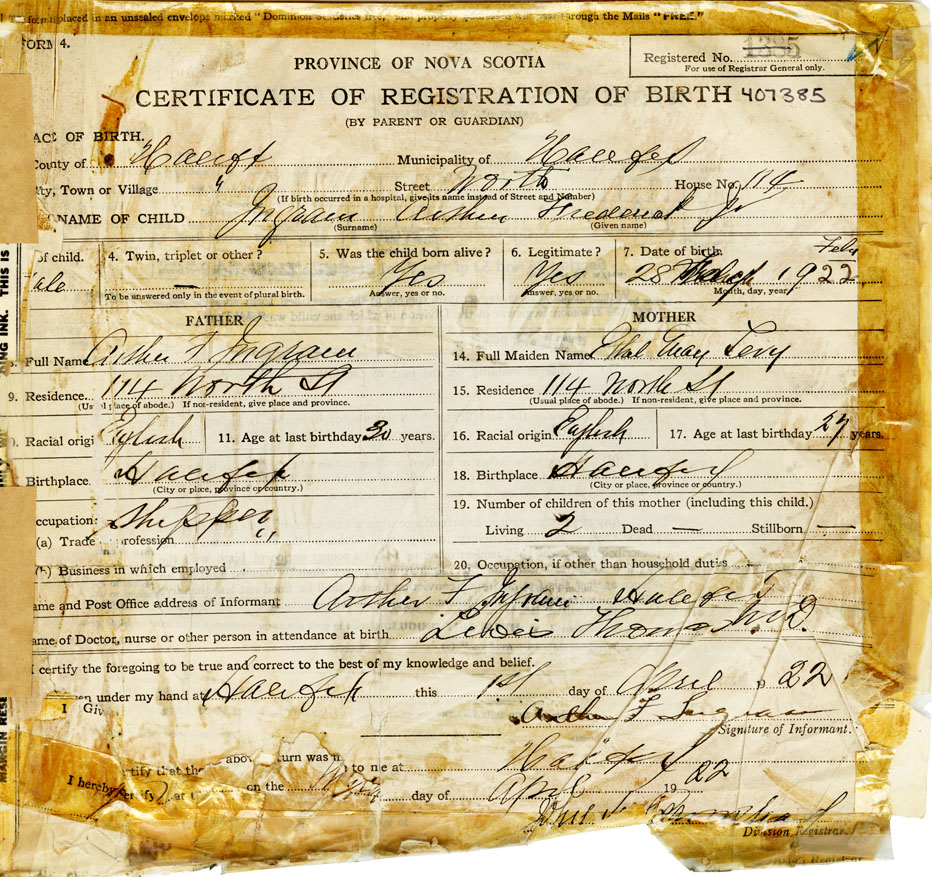 placed in an unsealed envelope marked "Dominion Statistics free," through the Mails "FREE."
FORM 4.
PROVINCE OF NOVA SCOTIA
Registered No. 1385
For use of Registrar General only.
CERTIFICATE OF REGISTRATION OF BIRTH 407385
(BY PARENT OR GUARDIAN)
OF BIRTH.
County of Halifax Municipality of Halifax
Town or Village " Street North House No. 114
(If birth occurred in a hospital, give its name instead of Street and Number)
NAME OF CHILD Ingram Arthur Frederick Jr
(Surname) (Given name)
of child. 4. Twin, triplet or other? 5. Was the child born alive? 6. Legitimate? 7. Date of birth
ale — Yes Yes 28 1922
To be answered only in the event of plural birth. Answer, yes or no. Answer, yes or no. Month, day, year
FATHER MOTHER
Full Name Arthur F Ingram 14. Full Maiden Name May Levy
9. Residence 114 North St 15. Residence 114 North St
(Usual place of abode.) If non-resident, give place and province. (Usual place of abode.) If non-resident, give place and province.
Racial origi English 11. Age at last birthday 30 years. 16. Racial origin English 17. Age at last birthday 27 years.
Birthplace Halifax 18. Birthplace Halifax
(City or place, province or country.) (City or place, province or country.)
19. Number of children of this mother (including this child.)
ccupation: Shipper
(a) Trade profession " Living 2 Dead — Stillborn —
Business in which employed 20. Occupation, if other than household duties —
ame and Post Office address of Informant Arthur F Ingram Halifax
ame of Doctor, nurse or other person in attendance at birth Lewis Thomas M.D.
I certify the foregoing to be true and correct to the best of my knowledge and belief.
en under my hand at Halifax this 1st day of April 22
I Giv
Arthur F Ingram
Signature of Informant.
rtify that the abov turn was to me at Halifax
I hereby certify that on the day of April 19 22
Division Registrar.
MARGIN RESE
ING INK. THIS IS